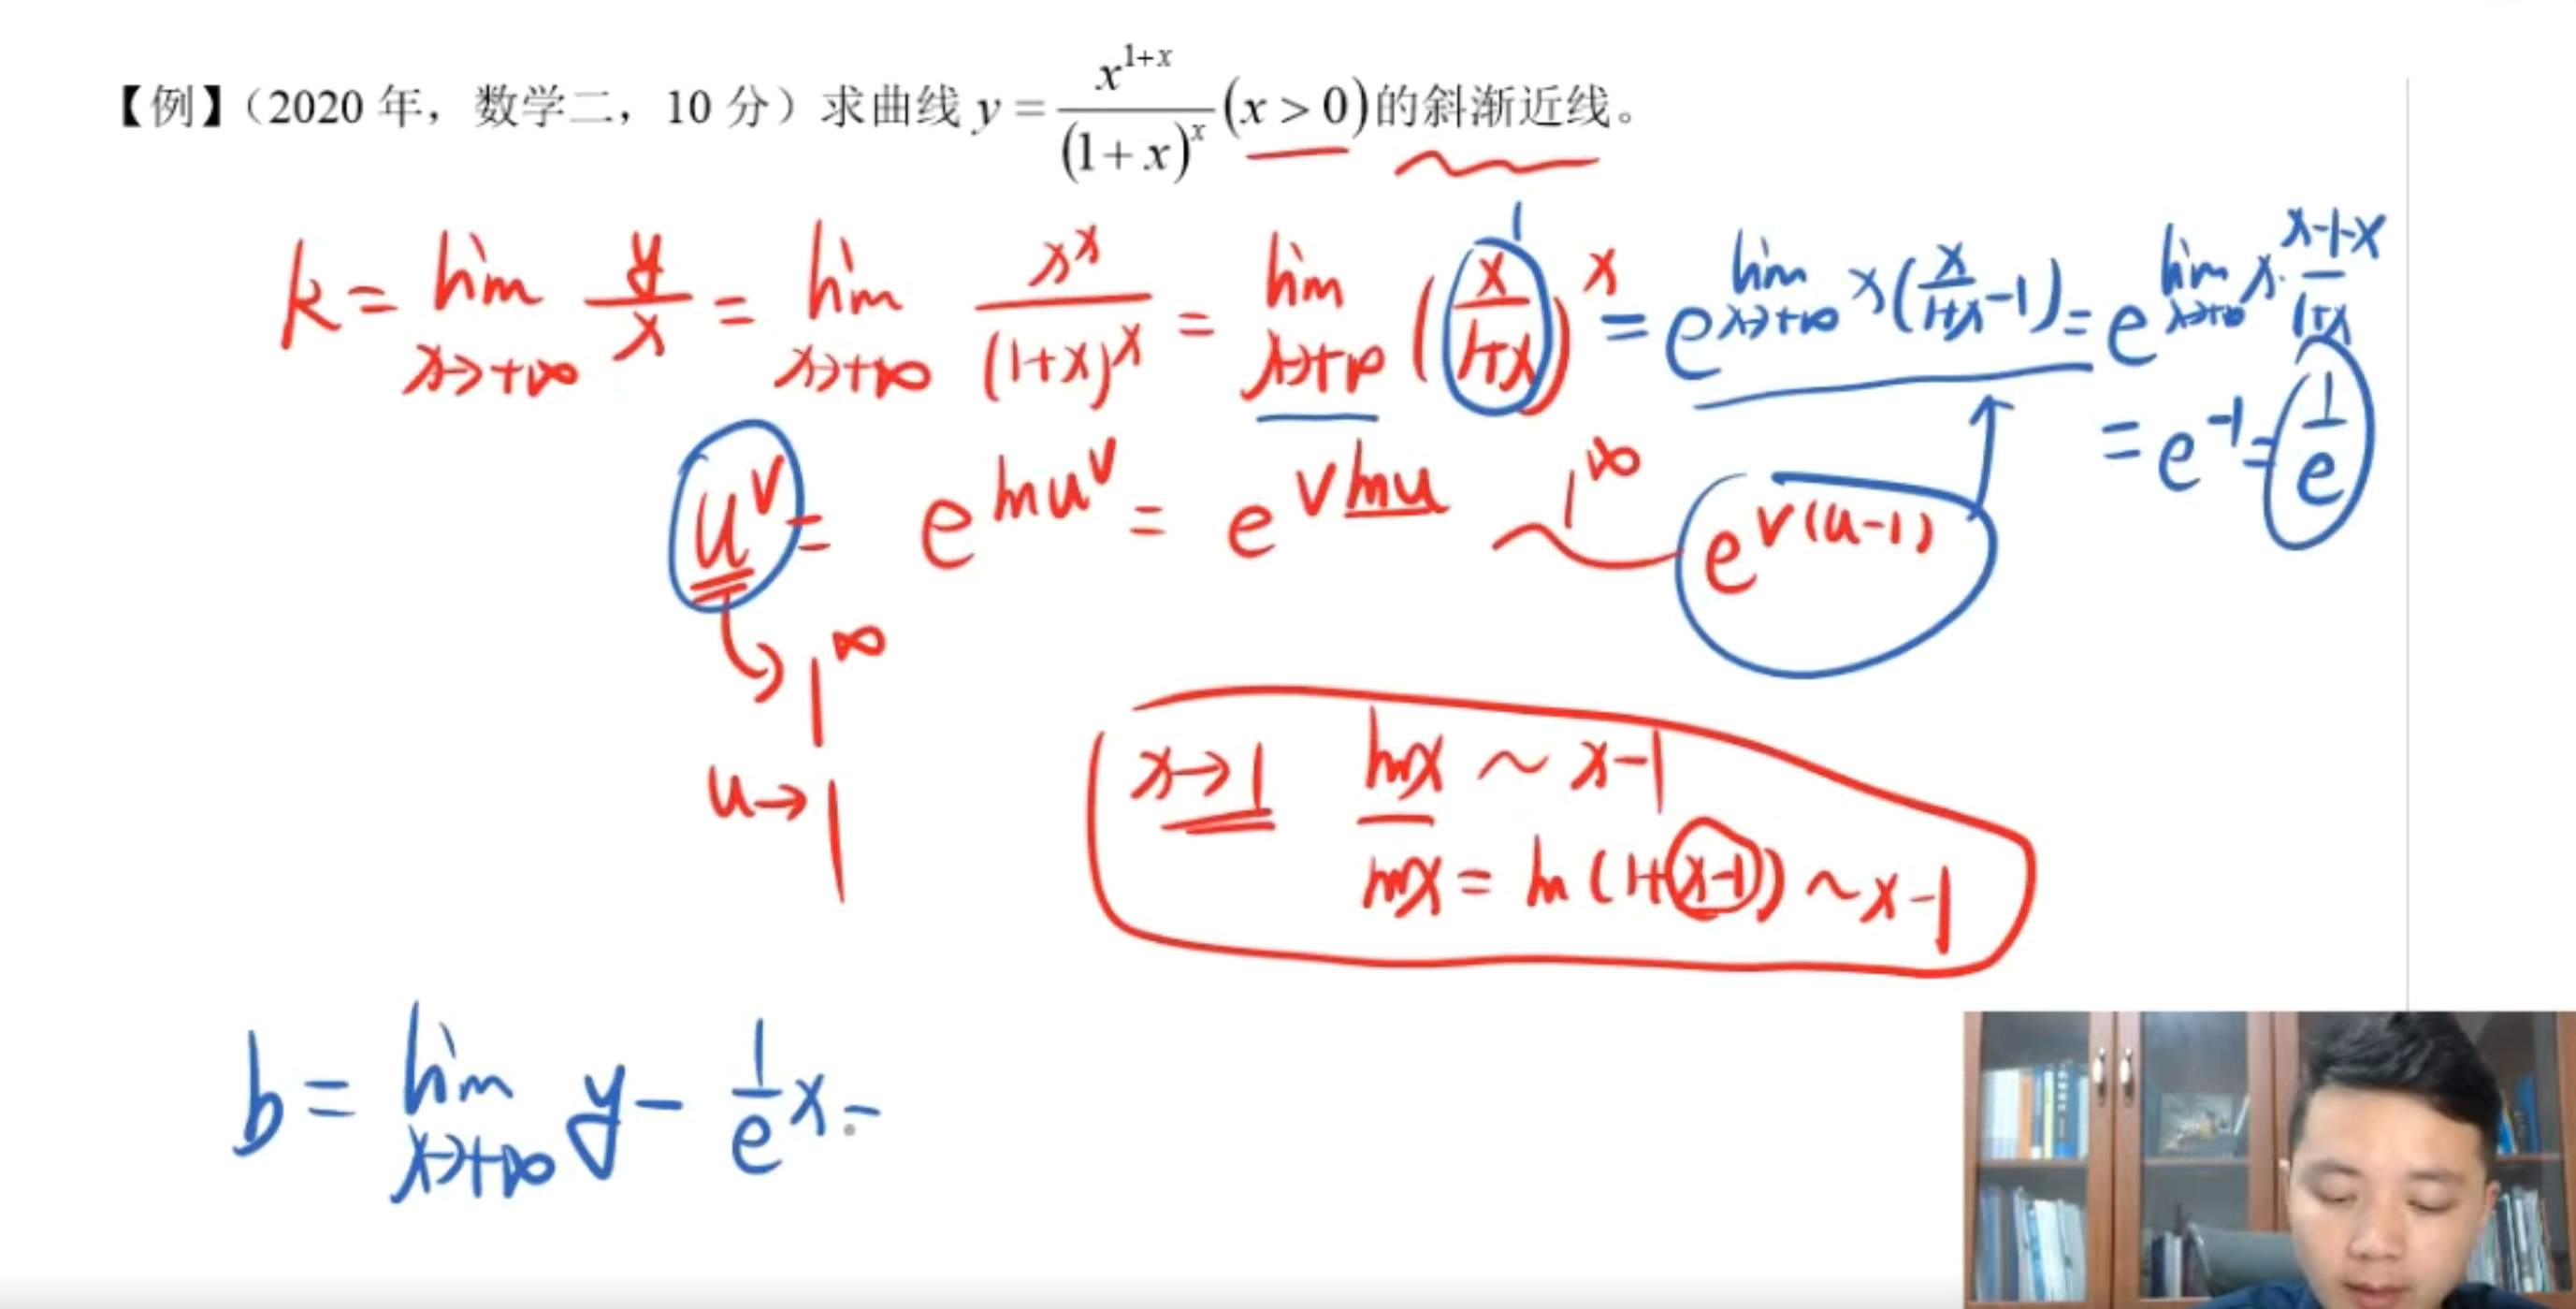 【例】（2020 年，数学二，10 分）求曲线 y = x^{1+x} / (1+x)^x (x > 0) 的斜渐近线。
k = lim_{x→+∞} y/x = lim_{x→+∞} x^x / (1+x)^x = lim_{x→+∞} (x/(1+x))^x = e^{lim_{x→+∞} x(x/(1+x) -1)} = e^{lim_{x→+∞} x· (x-1-x)/(1+x)}
1
= e^{-1} = 1/e
u^v = e^{ln u^v} = e^{v ln u} ~ 1^∞ e^{v(u-1)}
1^∞
u→1
x→1 ln x ~ x-1
ln x = ln(1+(x-1)) ~ x-1
b = lim_{x→+∞} y - 1/e x =